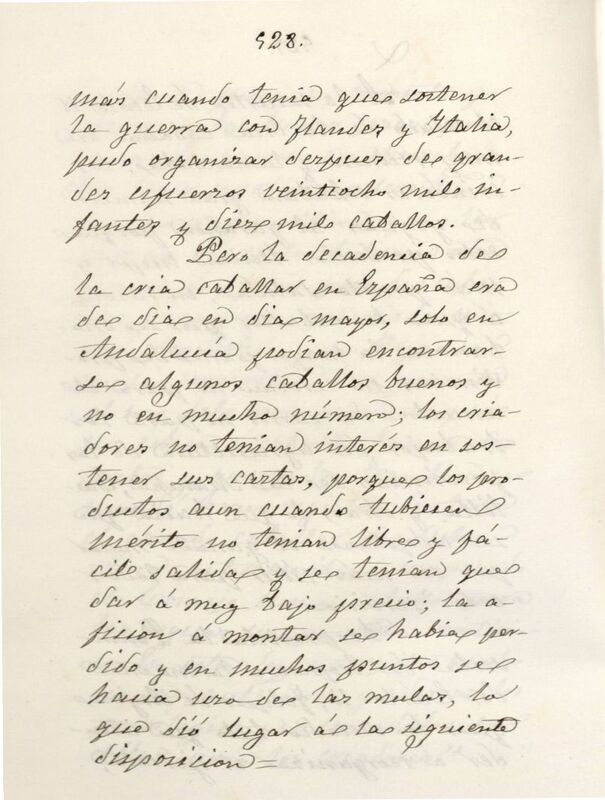 528.
más cuando tenia que sostener
la guerra con Flandes y Italia,
pudo organizar despues de gran-
des esfuerzos veintiocho mil in-
fantes y diez mil caballos.
Pero la decadencia de
la cria caballar en España era
de dia en dia mayor, solo en
Andalucía podian encontrar-
se algunos caballos buenos y
no en mucho número; los cria-
dores no tenian interés en sos-
tener sus castas, porque los pro-
ductos aun cuando tubiesen
mérito no tenian libre y fá-
cil salida y se tenian que
dar á muy bajo precio; la a-
ficion á montar se habia per-
dido y en muchos puntos se
hacia uso de las mulas, lo
que dió lugar á la siguiente
disposicion=